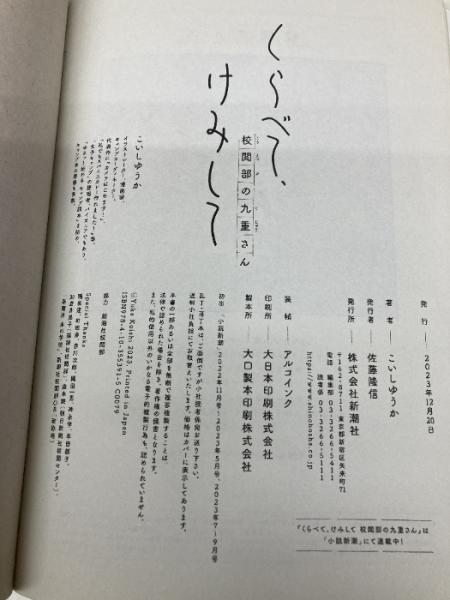 くらべて、
けみして
校閲部の九重さん
こいしゆうか
発行――2023年12月20日
著者――こいしゆうか
発行者――佐藤隆信
発行所――株式会社新潮社
〒162-8711 東京都新宿区矢来町71
電話 編集部 03-3266-5411
読者係 03-3266-5111
https://www.shinchosha.co.jp
装幀――アルコインク
印刷所――大日本印刷株式会社
製本所――大口製本印刷株式会社
初出 「小説新潮」2022年11月号〜2023年5月号、2023年7〜9月号
乱丁・落丁本は、ご面倒ですが小社読者係宛お送り下さい。
送料小社負担にてお取替えいたします。価格はカバーに表示してあります。
本書の一部あるいは全部を無断で複写複製することは、
法律で認められた場合を除き、著作権の侵害となります。
また、私的使用以外のいかなる電子的複製行為も、認められていません。
©Yuka Koishi 2023, Printed in Japan
ISBN978-4-10-355391-5 C0079
協力 新潮社校閲部
Special Thanks
『くらべて、けみして 校閲部の九重さん』は
「小説新潮」にて連載中!